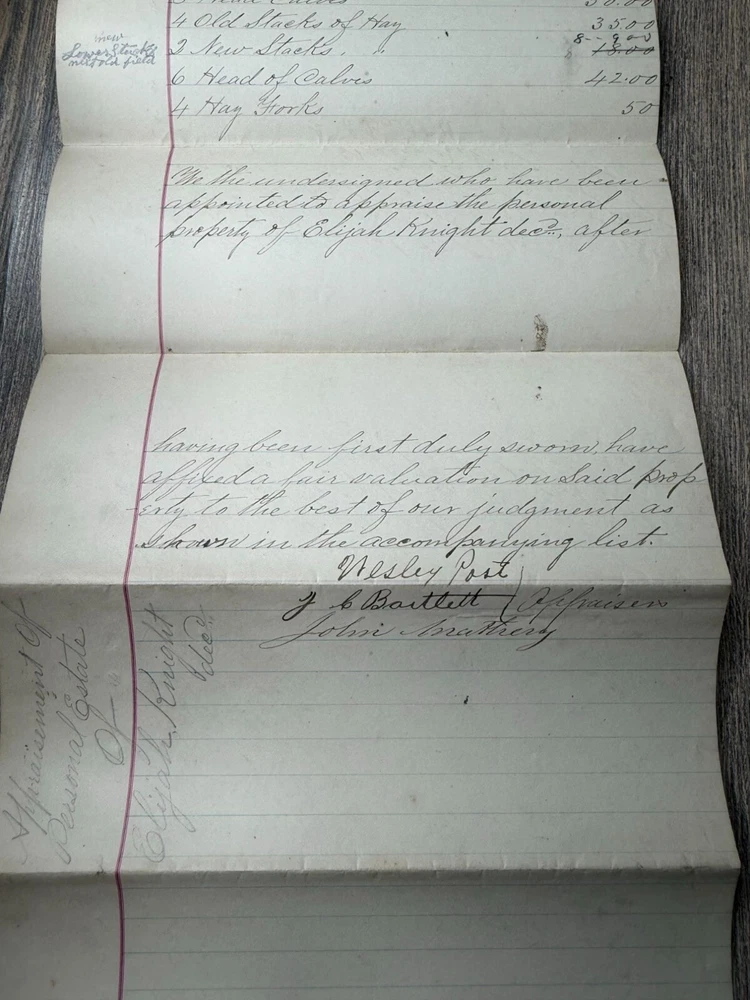 Head Calves 30.00
4 Old Stacks of Hay 35.00
8 - 9 00
new
Lower Stacks
2 New Stacks, " 18.00
6 Head of Calvis 42.00
4 Hay Forks 50
We the undersigned who have been
appointed to appraise the personal
property of Elijah Knight decd., after
having been first duly sworn, have
affixed a fair valuation on Said prop
erty to the best of our judgment as
shown in the accompanying list.
Wesley Post
J C Bartlett Appraisers
John Matheny
Appraisement Of
Personal Estate
Of
Elijah Knight
decd.